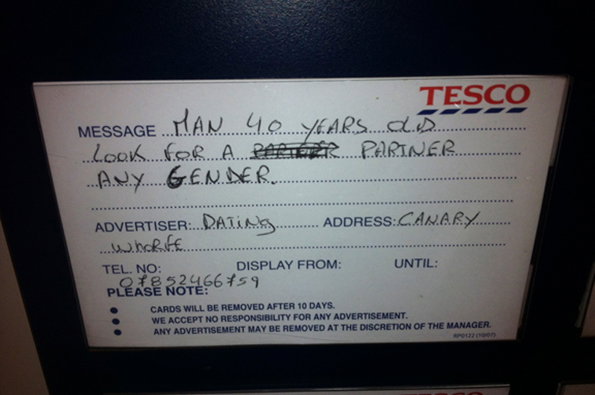 TESCO
MESSAGE MAN 40 YEARS OLD
LOOK FOR A PARTNER
ANY GENDER.
ADVERTISER: DATING ADDRESS: CANARY
WhORFE
TEL. NO: DISPLAY FROM: UNTIL:
07852466759
PLEASE NOTE:
• CARDS WILL BE REMOVED AFTER 10 DAYS.
• WE ACCEPT NO RESPONSIBILITY FOR ANY ADVERTISEMENT.
• ANY ADVERTISEMENT MAY BE REMOVED AT THE DISCRETION OF THE MANAGER.
RP0122 (10/07)
TESCO